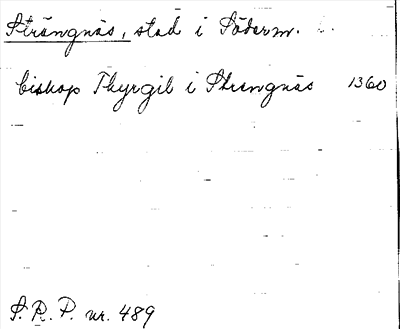 Strängnäs, stad i Söderm.
biskop Thyrgil i Strengnäs 1360
S. R. P. nr. 489